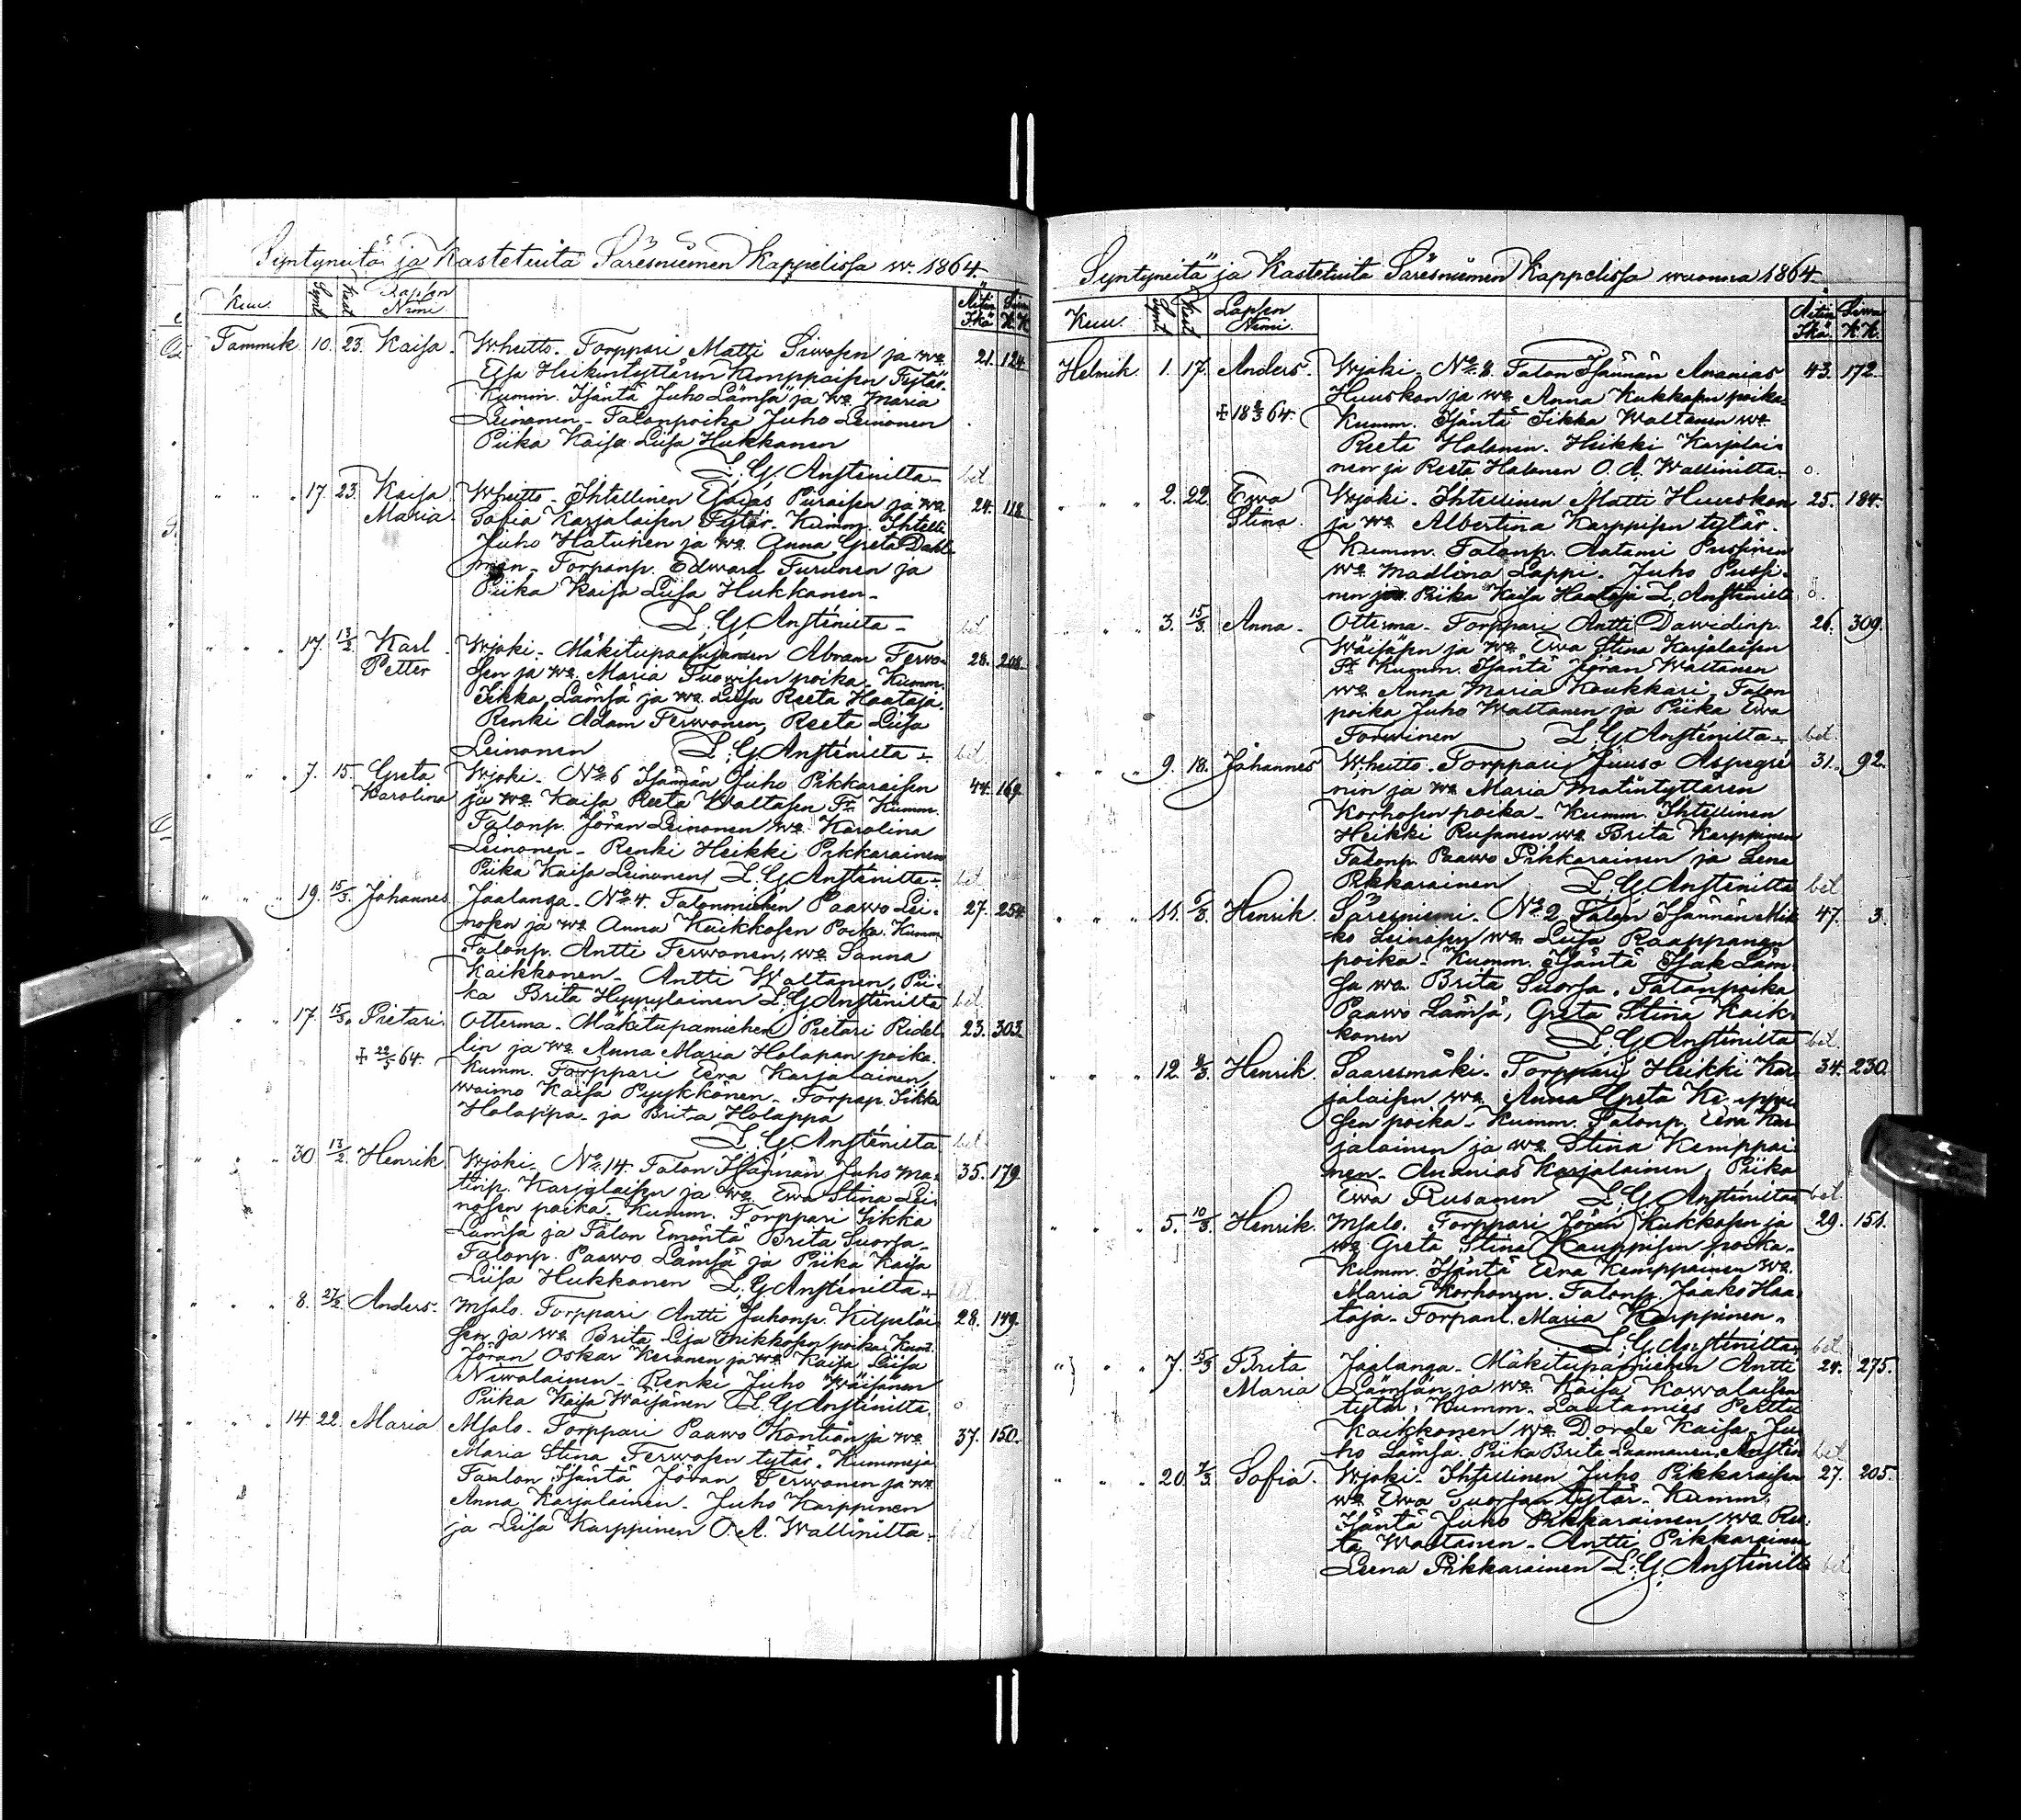 Syntyneitä ja Kastetuita Säresniemen Kappelissa w. 1864
Kuu. Synt Kast Lapsen Nimi Äitin Ikä Siwu K.K.
Tammik 10. 23. Kaisa. Wheitto. Torppari Matti Siwosen ja wa 21. 124
Elsa Heikintyttären Kemppaisen Tytär.
Kumm. Isäntä Juho Lämsä ja wa Maria
Leinonen. Talonpoika Juho Leinonen
Piika Kaisa Liisa Hukkanen
L. G. Anstenilta bet
" " " 17 23. Kaisa Wheitto. Ihtellinen Esaias Piiraisen ja wa 24. 118
Maria. Sofia Karjalaisen Tytär. Kumm. Ihtelli
Juho Hatunen ja wa Anna Greta Dahl
man. Torpanp. Edward Turunen ja
Piika Kaisa Liisa Hukkanen.
L. G. Anstenilta bet
" " " 17. 13/2 Karl Wjoki. Mäkitupa Abram Terwo 28. 208.
Petter sen ja wa Maria Tuowisen poika. Kumm.
Iikka Lämsä ja wa Liisa Reeta Haataja.
Renki Adam Terwonen, Reeta Liisa
Leinonen L. G. Anstenilta bet
" " " 7. 15. Greta Wjoki. No 6 Isännän Juho Pikkaraisen 44. 169.
Karolina ja wa Kaisa Reeta Waltasen Tr Kumm.
Talonp. Jöran Leinonen wa Karolina
Leinonen. Renki Heikki Pikkarainen
Piika Kaisa Leinonen L. G. Anstenilta bet
" " " 19. 15/3. Johannes Jaalanga. No 4. Talonmiehen Paawo Lei- 27. 254
nosen ja wa Anna Kaikkosen Poika. Kumm
Talonp. Antti Terwonen, wa Sanna
Kaikkonen. Antti Waltanen, Pii-
ka Brita Hyyryläinen L. G. Anstenilta bet
" " " 17. 15/3. Pietari. Otterma. Mäkitupamiehen Pietari Ridel- 23. 303
lin ja wa Anna Maria Holapan poika.
+ 22/5 64. Kumm. Torppari Eera Karjalainen,
waimo Kaisa Pyykkönen. Torpap. Iikka
Holappa ja Brita Holappa
L. G. Anstenilta bet
" " " 30 13/2. Henrik Wjoki. No 14. Talon Isännän Juho Ma- 35. 179
tinp. Karjalaisen ja wa Ewa Stina Lei-
nosen poika. Kumm. Torppari Iikka
Lämsä ja Talon Emäntä Brita Suorsa.
Talonp. Paawo Lämsä ja Piika Kaisa
Liisa Hukkanen L. G. Anstenilta
" " " 8. 27/2 Anders. Msalo. Torppari Antti Juhonp. Kilpeläi 28. 149.
sen ja wa Brita Lisa Mikkosen poika. Kum.
Jöran Oskar Keränen ja wa Kaisa Liisa
Niwalainen. Renki Juho Wäisänen
Piika Kaisa Wäisänen L. G. Anstenilta o
" " " 14 22. Maria Msalo. Torppari Paawo Kontian ja wa 37. 150.
Maria Stina Terwosen tytär. Kummeja
Taulon Isäntä Jöran Terwonen ja wa
Anna Karjalainen. Juho Karppinen
ja Liisa Karppinen O. A. Wallinilta. bet
Syntyneitä ja Kastetuita Säresniemen Kappelissa wuonna 1864
Kuu. Synt Kast Lapsen Nimi. Äitin Ikä Siwu K.K.
Helmik. 1. 17. Anders. Wjoki. No 8. Talon Isännän Ananias 43. 172.
Huuskon ja wa Anna Kukkosen poika.
+ 18 8/3 64. Kumm. Isäntä Iikka Waltanen wa
Reeta Halonen. Heikki Karjalai
nen ja Reeta Halonen O. A. Wallinilta. o.
" " " 2. 22. Ewa Wjoki. Ihtellinen Matti Huuskon 25. 184.
Stina. ja wa Albertina Karppisen tytär.
Kumm. Talonp. Aatami Pussinen
wa Madlina Lappi. Juho Pussi-
nen ja Piika Kaisa Haataja L. Anstenilta o.
" " " 3. 15/3. Anna. Otterma. Torppari Antti Dawidinp. 26. 309.
Wäisäsen ja wa Ewa Stina Karjalaisen
Tr Kumm. Isäntä Jöran Waltanen
wa Anna Maria Koukkari, Talon
poika Juho Waltanen ja Piika Ewa
Torwinen L. G. Anstenilta. bet.
" " " 9. 18. Johannes Wheitto. Torppari Juuso Aspegré 31. 92.
nin ja wa Maria Matintyttären
Korhosen poika. Kumm. Ihtellinen
Heikki Rusanen wa Brita Karppinen
Talonp. Paawo Pikkarainen ja Lena
Pikkarainen L. G. Anstenilta bet
" " " 11. 6/3. Henrik. Säresniemi. No 2 Talon Isännän Mik 47. 3.
ko Leinosen wa Liisa Raappanan
poika. Kumm. Isäntä Isak Läm
sä wa Brita Suorsa. Talonpoika
Paawo Lämsä, Greta Stina Kaik
konen L. G. Anstenilta bet.
" " " 12. 8/3. Henrik. Saaresmäki. Torppari Heikki Kar 34. 230.
jalaisen wa Anna Greta Ke mppai
sen poika. Kumm. Talonp. Eera Kar
jalainen ja wa Stina Kemppai
nen. Ananias Karjalainen, Piika
Ewa Rusanen L. G. Anstenilta bet
" " " 5. 10/3. Henrik. Msalo. Torppari Jöran Kukkosen ja 29. 151.
wa Greta Stina Kauppisen poika.
Kumm. Isäntä Eera Kemppainen wa.
Maria Korhonen. Talonp. Jaako Haa
taja. Torpant. Maria Karppinen.
L. G. Anstenilta bet
" " " 7. 15/3 Brita Jaalanga. Mäkitupamiehen Antti 24. 275.
Maria Lämsän ja wa Kaisa Kowalaisen
tytär. Kumm. Lautamies Pettu
Kaikkonen wa Dorde Kaisa. Ju
ho Lämsä. Piika Brita Laamanen. Ansten bet
" " " 20. 7/3. Sofia. Wjoki. Ihtellinen Juho Pikkaraisen 27. 205.
wa Ewa Suorsan tytär. Kumm.
Isäntä Juho Pikkarainen wa Ree-
ta Waltanen. Antti Pikkarainen
Leena Pikkarainen L. G. Anstenilta bet